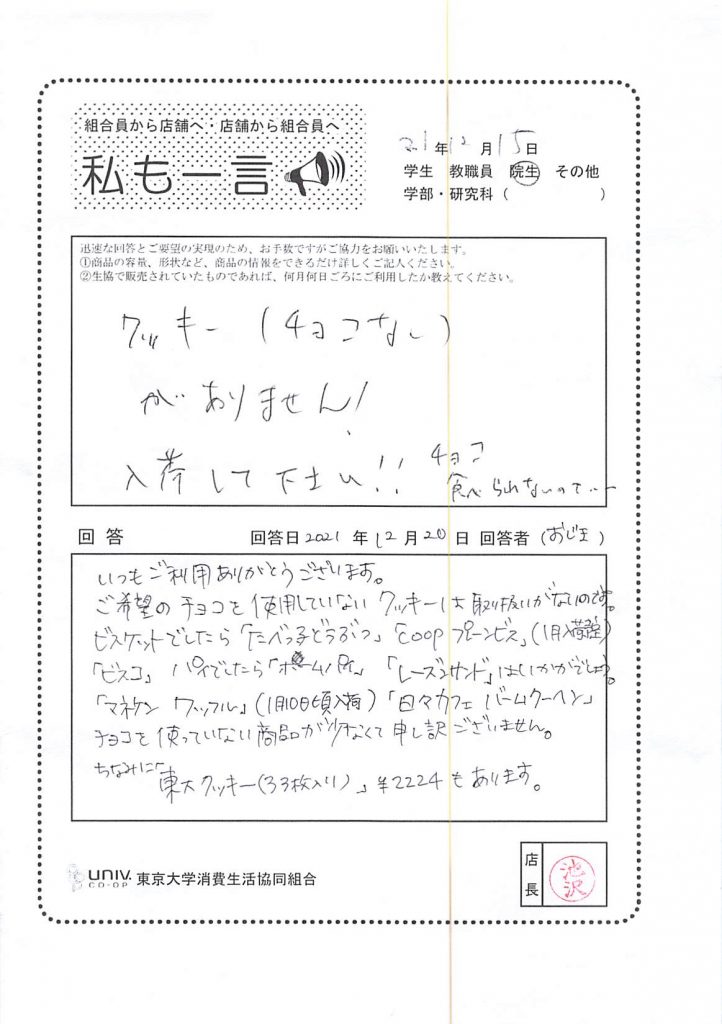 組合員から店舗へ・店舗から組合員へ
私も一言
21年12月15日
学生 教職員 院生 その他
学部・研究科( )
迅速な回答とご要望の実現のため、お手数ですがご協力をお願いいたします。
①商品の容量、形状など、商品の情報をできるだけ詳しくご記入ください。
②生協で販売されていたものであれば、何月何日ごろにご利用したか教えてください。
クッキー (チョコなし)
がありません!
入荷して下さい!! チョコ
食べられないので…
回答 回答日2021年12月20日 回答者(おじま)
いつもご利用ありがとうございます。
ご希望のチョコを使用していないクッキーは取扱いがないのです。
ビスケットでしたら「たべっ子どうぶつ」「coopプレーンビス」(1月入荷予定)
「ビスコ」 パイでしたら「ホームパイ」 「レーズンサンド」はいかがでしょう。
「マネケン ワッフル」(1月10日頃入荷)「日々カフェ バームクーヘン」
チョコを使っていない商品が少なくて申し訳ございません。
ちなみに「東大クッキー(33枚入り)」¥2224もあります。
UNIV. CO-OP 東京大学消費生活協同組合
店長 池沢